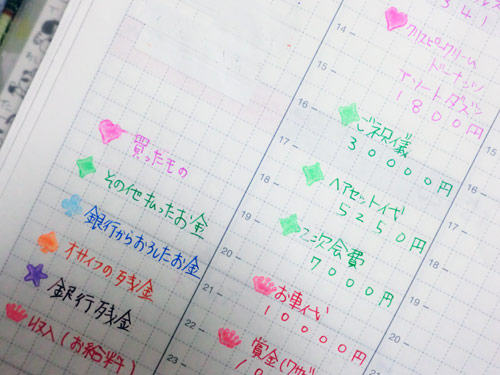 買ったもの
その他払ったお金
銀行からおろしたお金
オサイフの残金
銀行残金
収入(お給料)
341
14
クリスピークリーム
ドーナッツ
15
1800円
16
ご祝儀
30000円
17
18
ヘアセット代
5250円
19
二次会費
7000円
20
21
お車代
10000円
22
23